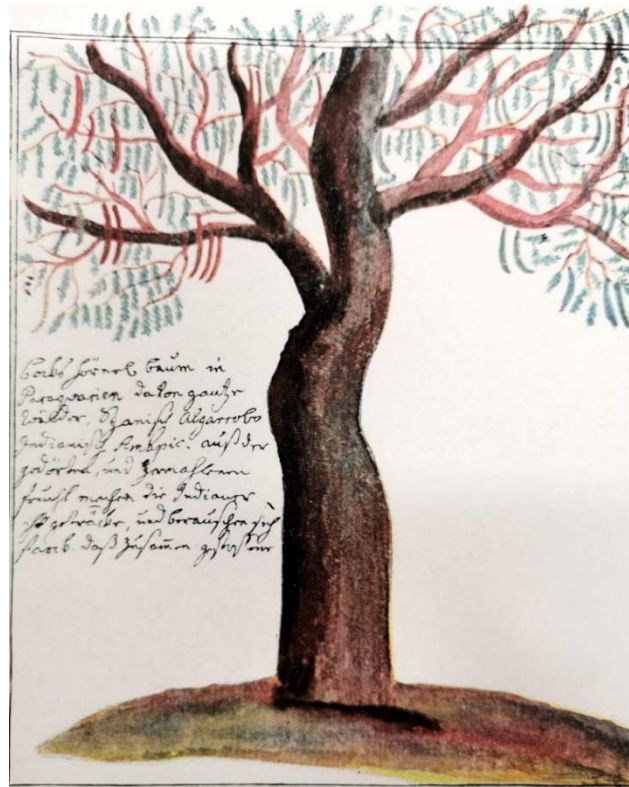 Bocks hörnel baum in
Paraquarien davon gantze
Wälder, Spanisch Algarrobo
Indianisch Amapic. auß der
gedörten, und zermahlenen
frucht machen die Indianer
ihr geträncke, und berauschen sich
starck. daß zusammen